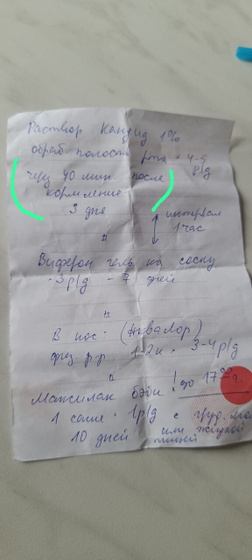 Раствор Кандид 1%
обраб полости рта × 4 р/д
через 40 мин. после
кормления
3 дня
интервал
1 час
Виферон гель на соску
3 р/д - 7 дней
В нос - (АкваЛор)
физ р-р 1-2 к. 3-4 р/д
Максилак бэби ! до 17⁰⁰ч.
1 саше · 1 р/д с груд. мол
10 дней или жидкой
пищей